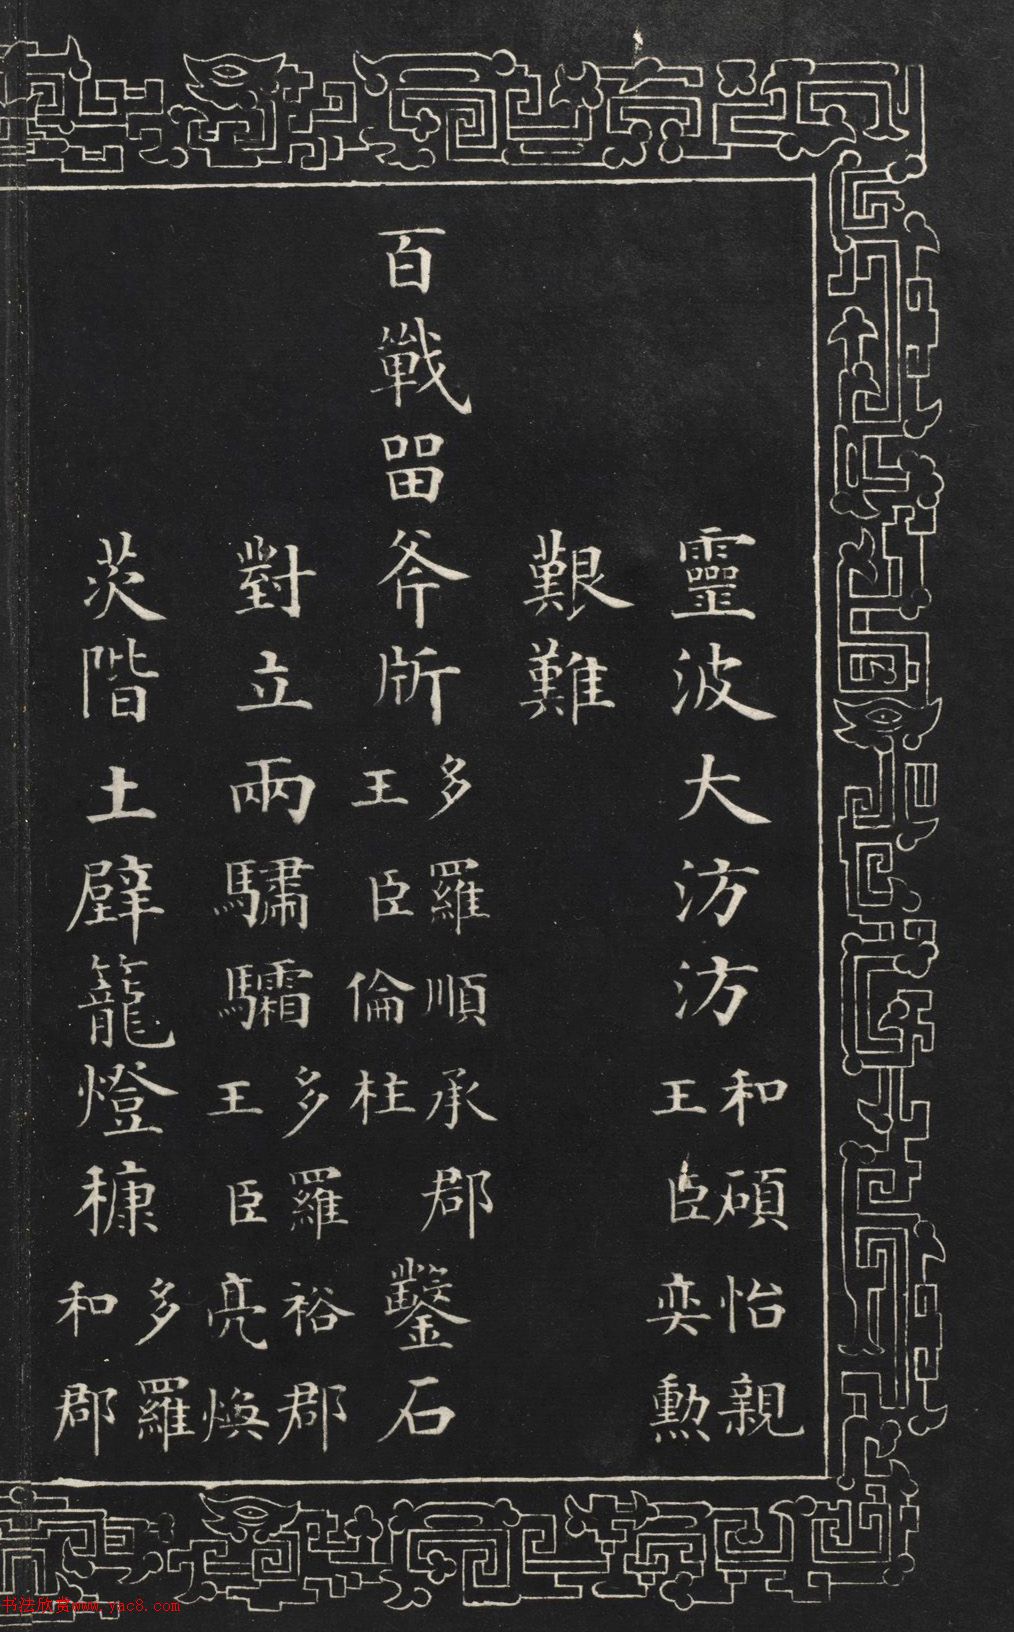 靈波大汸汸和碩怡親王臣奕勳
艱難
百戰畱斧斨多羅順承郡王臣倫柱鑿石
對立兩驌驦多羅裕郡王臣亮煥
茨階土壁籠燈穅多羅和郡
书法欣赏www.yac8.com